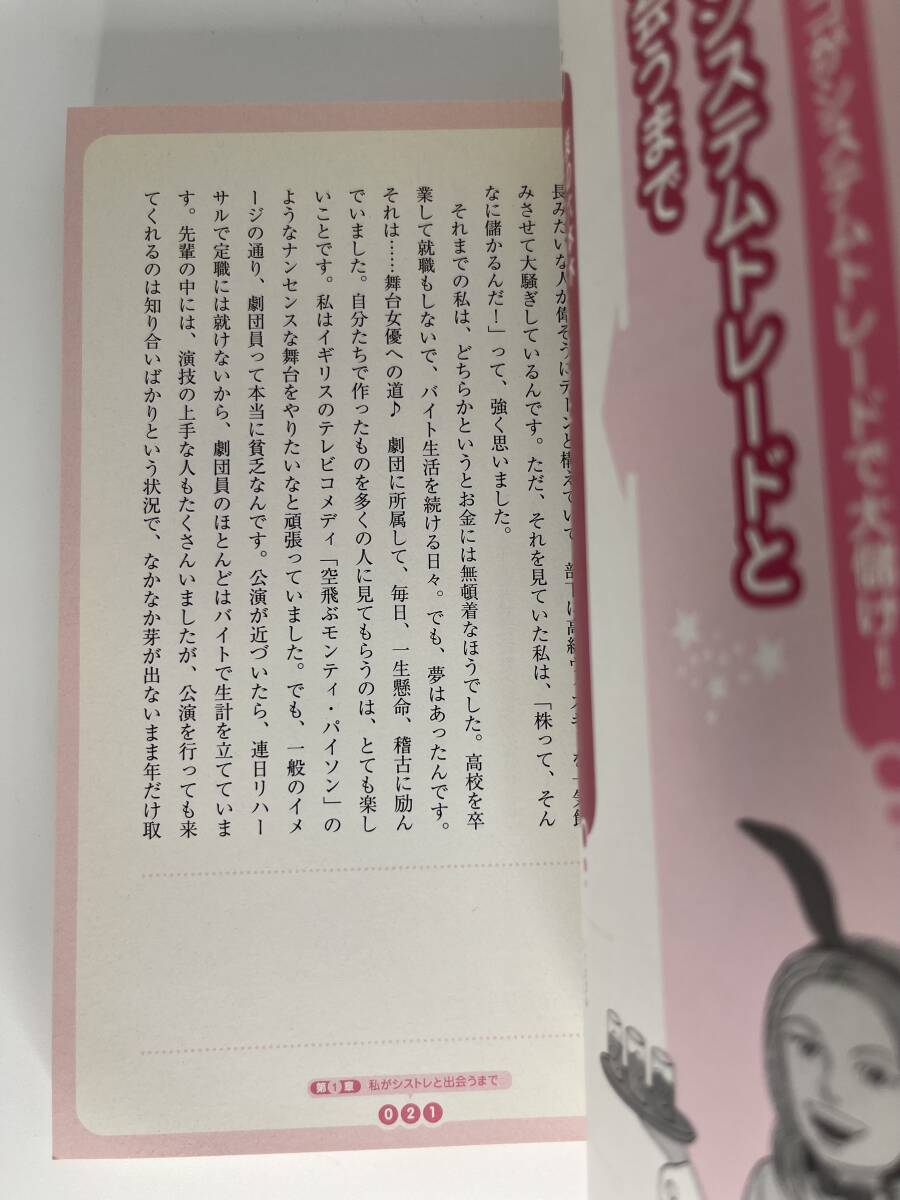 システムトレードと
会うまで
がシステムトレードで大儲け！
長みたいな人が偉そうにデーンと構えていて、部下に高級ウ
みさせて大騒ぎしているんです。ただ、それを見ていた私は、「株って、そん
なに儲かるんだ！」って、強く思いました。
それまでの私は、どちらかというとお金には無頓着なほうでした。高校を卒
業して就職もしないで、バイト生活を続ける日々。でも、夢はあったんです。
それは……舞台女優への道♪　劇団に所属して、毎日、一生懸命、稽古に励ん
でいました。自分たちで作ったものを多くの人に見てもらうのは、とても楽し
いことです。私はイギリスのテレビコメディ「空飛ぶモンティ・パイソン」の
ようなナンセンスな舞台をやりたいなと頑張っていました。でも、一般のイメ
ージの通り、劇団員って本当に貧乏なんです。公演が近づいたら、連日リハー
サルで定職には就けないから、劇団員のほとんどはバイトで生計を立てていま
す。先輩の中には、演技の上手な人もたくさんいましたが、公演を行っても来
てくれるのは知り合いばかりという状況で、なかなか芽が出ないまま年だけ取
第1章 私がシストレと出会うまで
021